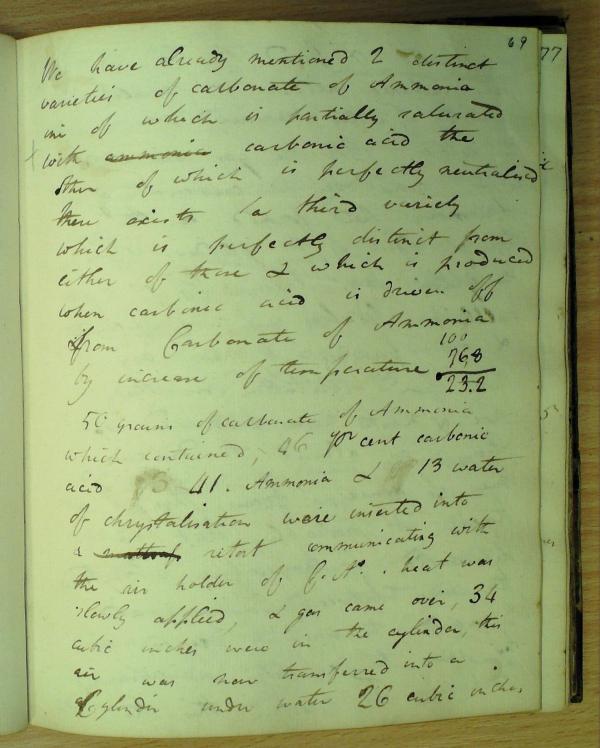 69
77
We have already mentioned 2 distinct
varieties of carbonate of Ammonia
in of which is partially saturated
with ammonia carbonic acid the
other of which is perfectly neutralised
there exists a third variety
which is perfectly distinct from
either of these & which is produced
when carbonic acid is driven off
from Carbonate of Ammonia
100
by increase of temperature 76,8
23.2
50 grains of carbonate of Ammonia
which contained, 46 per cent carbonic
acid 41. Ammonia & 13 water
of chrystalisation were inserted into
a retort communicating with
the air holder of heat was
slowly applied, & gas came over, 34
cubic inches were in the cylinder, this
air was now transferred into a
Cylinder under water 26 cubic inches